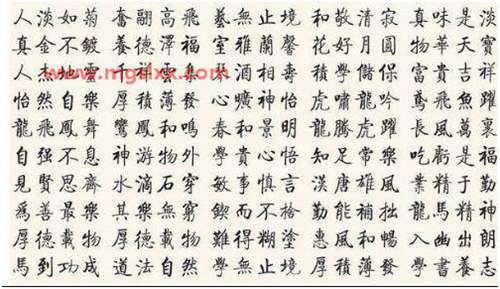 人淡如菊 奮翮高飛 藝無止境 和敬清寂 真味是淡
真金不鍍 養德澤福 室雅蘭馨 花好月圓 物華天寶
人杰地靈 酒相壽 學儲保 富貴吉祥
怡然自樂 厚積薄發 心曠神怡 虎嘯龍吟 鳶飛魚躍
龍飛鳳舞 鸞鳳和鳴 春和景明 龍騰虎躍 長風萬裏
自强不息 神游物外 學貴心悟 知足常樂 吃虧是福
見賢思齊 水滴石穿 敏事慎言 漢唐雄風 業精于勤
爲善最樂 其樂無窮 鍥而不捨 勤能補拙 龍馬精神
厚德載物 厚德載物 難得糊塗 惠風和暢 入幽出朗
馬到功成 道法自然 學無止境 厚積薄發 學書養志